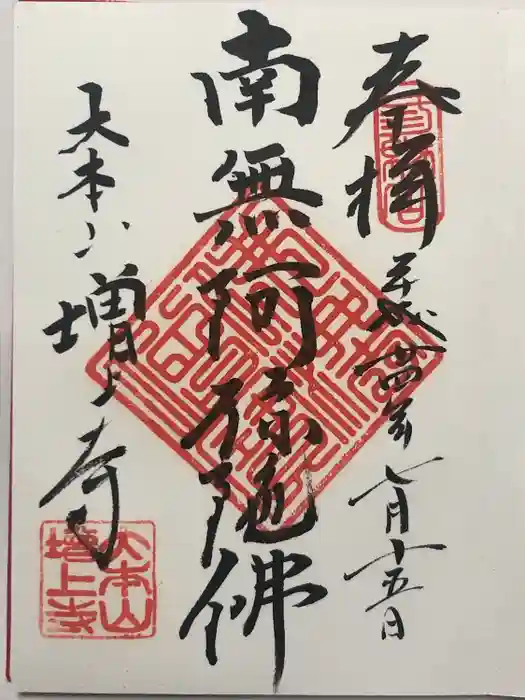 奉拝
平成二十四年七月十五日
南無阿弥陀佛
大本山
増上寺
大本山
増上寺